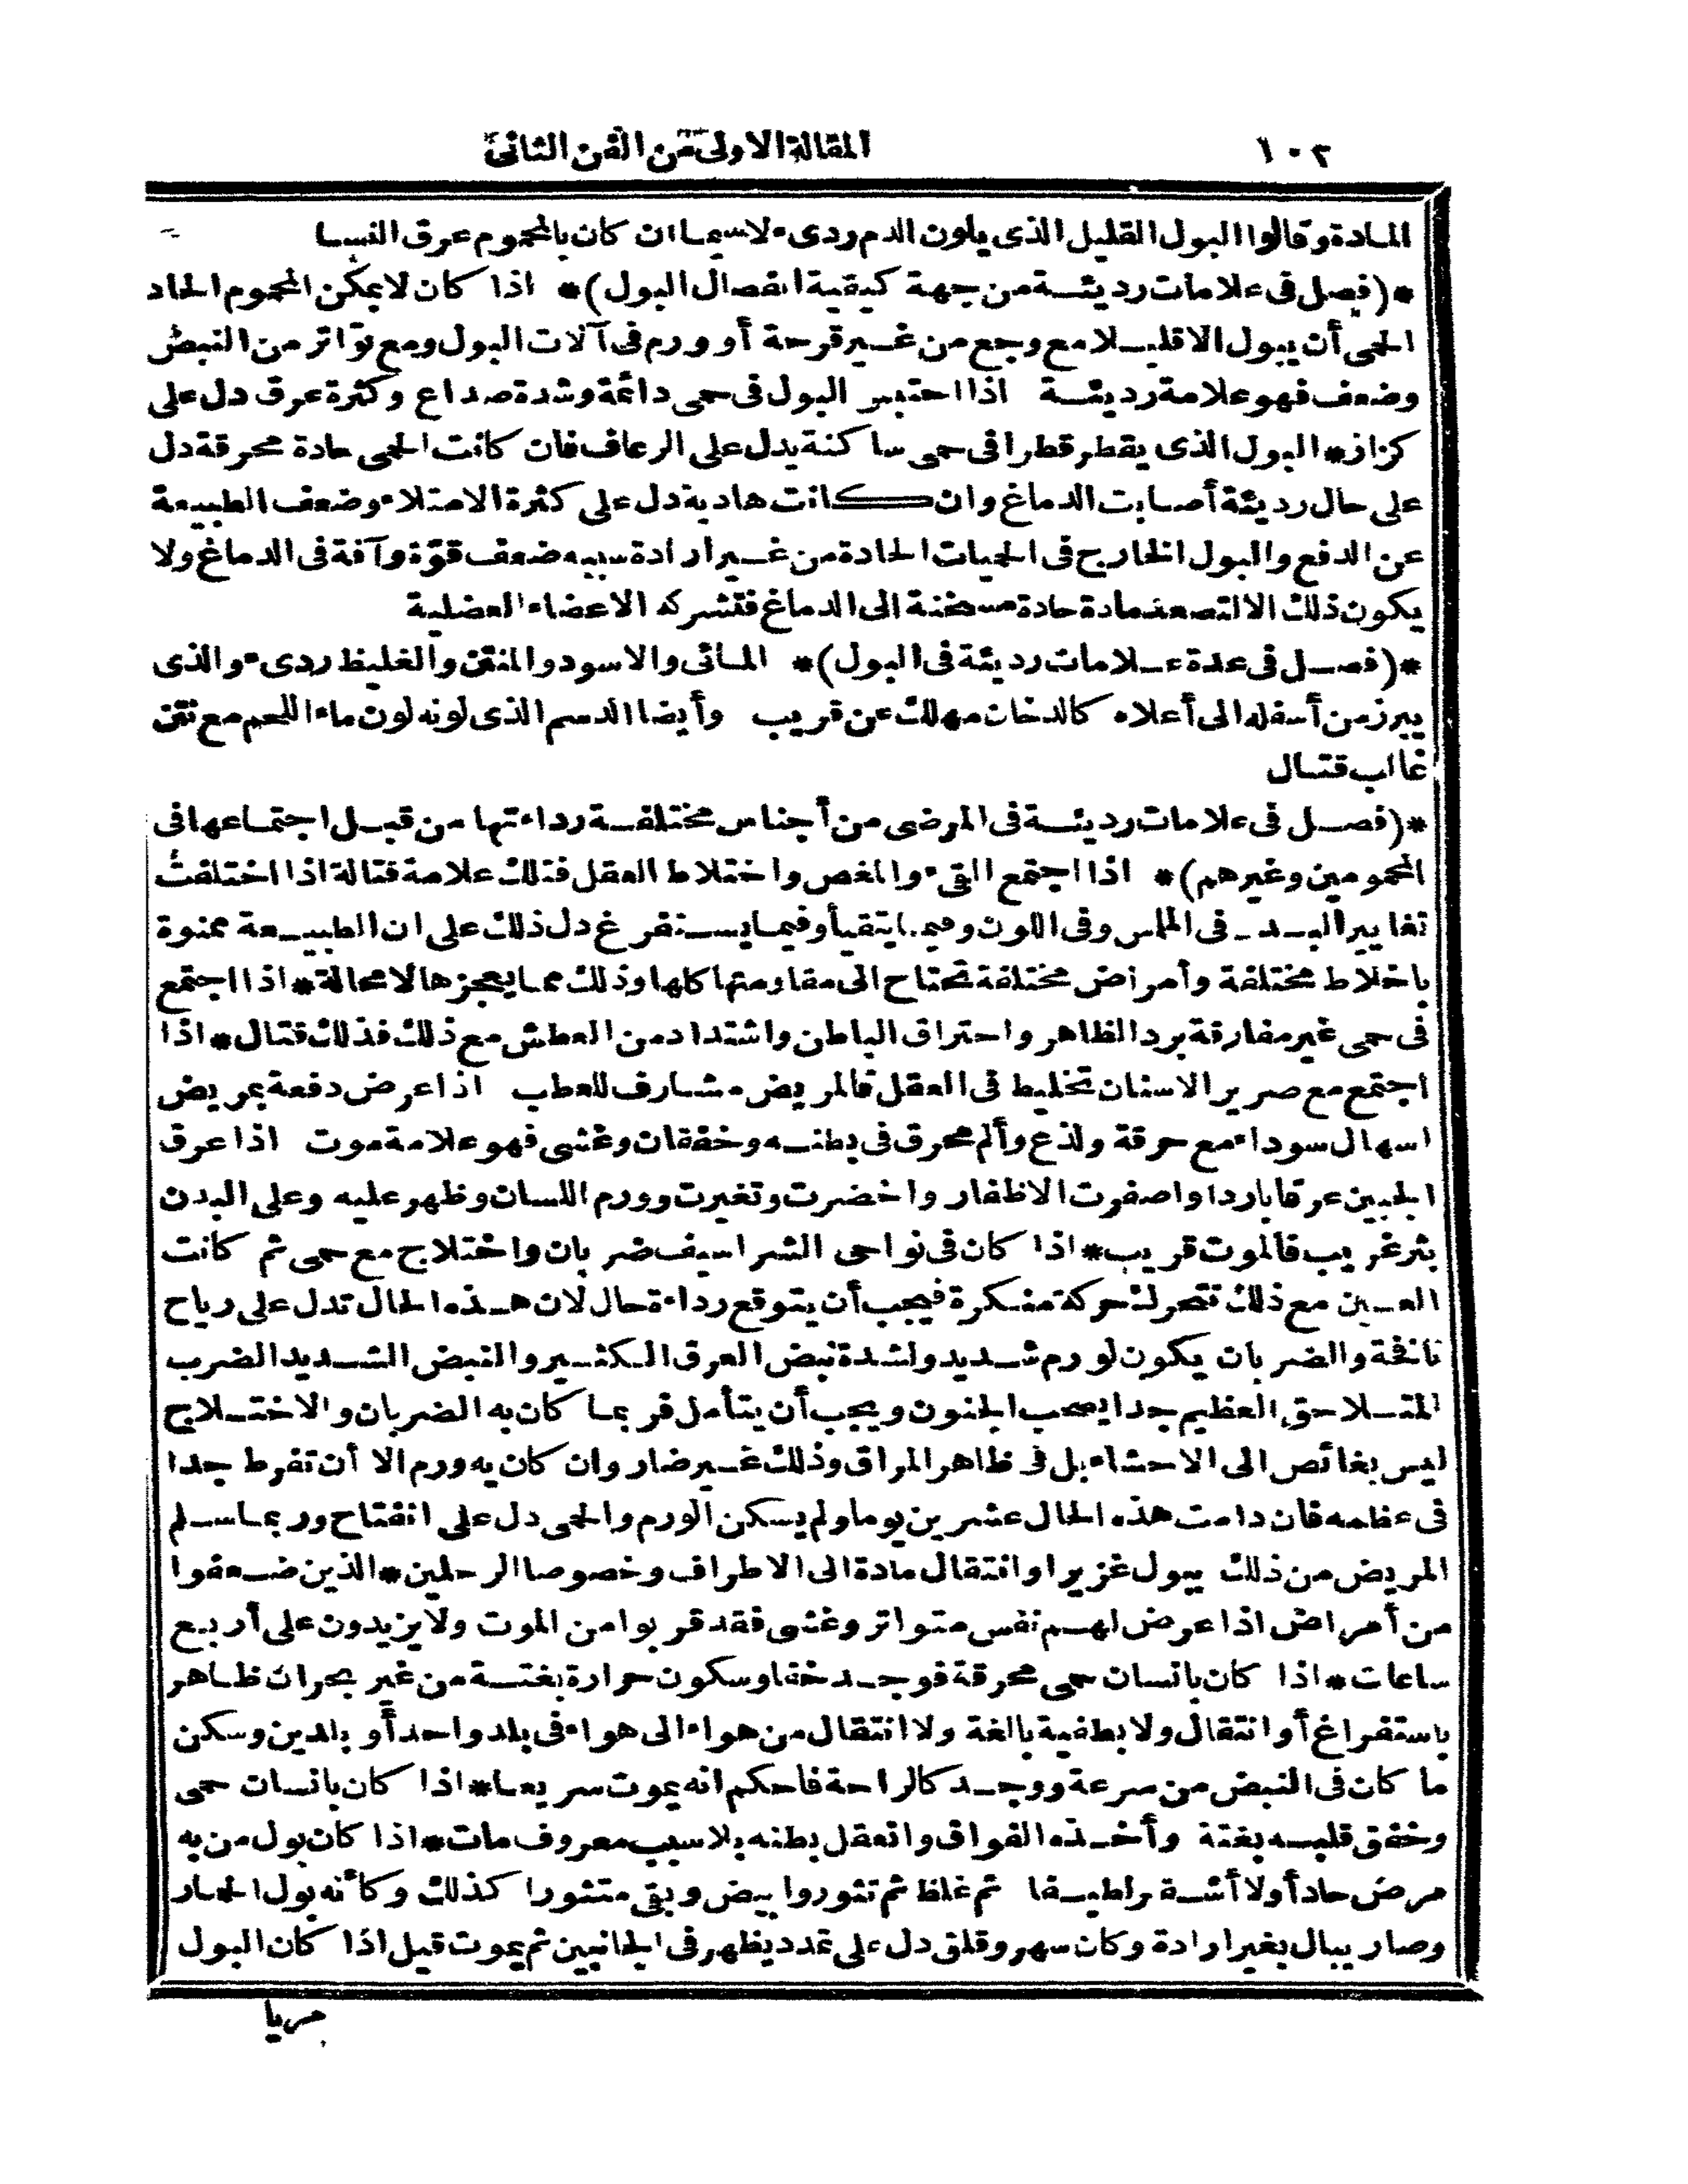 ١٠٢ المقالة الاولى من الفن الثانى
المادة وقالوا البول القليل الذى بلون الدم ردىء لاسيما ان كان بالمحموم عرق النسا
*(فصل فى علامات رديئة من جهة كيفية انفصال البول)* اذا كان لا يمكن المحموم الحاد
الحمى أن يبول الا قليلا مع وجع من غير قرحة أو ورم فى آلات البول ومع تواتر من النبض
وضعف فهو علامة رديئة اذا احتبس البول فى حمى دائمة وشدة صداع وكثرة عرق دل على
كزاز* البول الذى يقطر قطرا فى حمى ساكنة يدل على الرعاف فان كانت الحمى حادة محرقة دل
على حال رديئة أصابت الدماغ وان كانت هادية دل على كثرة الامتلاء وضعف الطبيعة
عن الدفع والبول الخارج فى الحميات الحادة من غير ارادة سببه ضعف قوّة وآفة فى الدماغ ولا
يكون ذلك الا لتصعد مادة حادة مسخنة الى الدماغ فتشركه الاعضاء العضلية
*(فصل فى عدة علامات رديئة فى البول)* المائى والاسود والمنتن والغليظ ردىء والذى
يبرز من أسفله الى أعلاه كالدخان مهلك عن قريب وأيضا الدسم الذى لونه لون ماء اللحم مع نتن
غالب قتال
*(فصل فى علامات رديئة فى المرضى من أجناس مختلفة رداءتها من قبل اجتماعها فى
المحمومين وغيرهم)* اذا اجتمع القىء والمغص واختلاط العقل فتلك علامة قتالة اذا اختلفت
تغايير البدن فى الملمس وفى اللون وفيما يتقيأ وفيما يستفرغ دل ذلك على ان الطبيعة ممنوة
باخلاط مختلفة وأمراض مختلفة تحتاج الى مقاومتها كلها وذلك مما يعجزها لا محالة* اذا اجتمع
فى حمى غير مفارقة برد الظاهر واحتراق الباطن واشتداد من العطش مع ذلك فذلك قتال* اذا
اجتمع مع صرير الاسنان تخليط فى العقل فالمريض مشارف للعطب اذا عرض دفعة بمريض
اسهال سوداء مع حرقة ولذع وألم محرق فى بطنه وخفقان وغشى فهو علامة موت اذا عرق
الجبين عرقا باردا واصفرت الاظفار واخضرت وتغيرت وورم اللسان وظهر عليه وعلى البدن
بثر غريب فالموت قريب* اذا كان فى نواحى الشراسيف ضربان واختلاج مع حمى ثم كانت
العين مع ذلك تتحرك حركة منكرة فيجب أن يتوقع رداءة حال لان هذه الحال تدل على رياح
نافخة والضربان يكون لورم شديد ولشدة نبض العرق الكثير والنبض الشديد الضرب
المتلاحق العظيم جدا يصحب الجنون ويجب أن يتأمل فربما كان به الضربان والاختلاج
ليس بغائص الى الاحشاء بل فى ظاهر المراق وذلك غير ضار وان كان به ورم الا أن تفرط جدا
فى عظمه فان دامت هذه الحال عشرين يوما ولم يسكن الورم والحمى دل على انفتاح وربما سلم
المريض من ذلك ببول غزير او انتقال مادة الى الاطراف وخصوصا الرجلين* الذين ضعفوا
من أمراض اذا عرض لهم نفس متواتر وغشى فقد قربوا من الموت ولا يزيدون على أربع
ساعات* اذا كان بانسان حمى محرقة فوجد خفا وسكون حرارة بغتة من غير بحران ظاهر
باستفراغ أو انتقال ولا بطفية بالغة ولا انتقال من هواء الى هواء فى بلد واحد أو بلدين وسكن
ما كان فى النبض من سرعة ووجد كالراحة فاحكم انه يموت سريعا* اذا كان بانسان حمى
وخفق قلبه بغتة وأخذه الفواق وانعقل بطنه بلا سبب معروف مات* اذا كان بول من به
مرض حاد أولا أشقر لطيفا ثم غلظ ثم تثور وابيض وبقى متثورا كذلك وكأنه بول الحمار
وصار يبال بغير ارادة وكان سهر وقلق دل على تمدد يظهر فى الجانبين ثم يموت قيل اذا كان البول
مريا